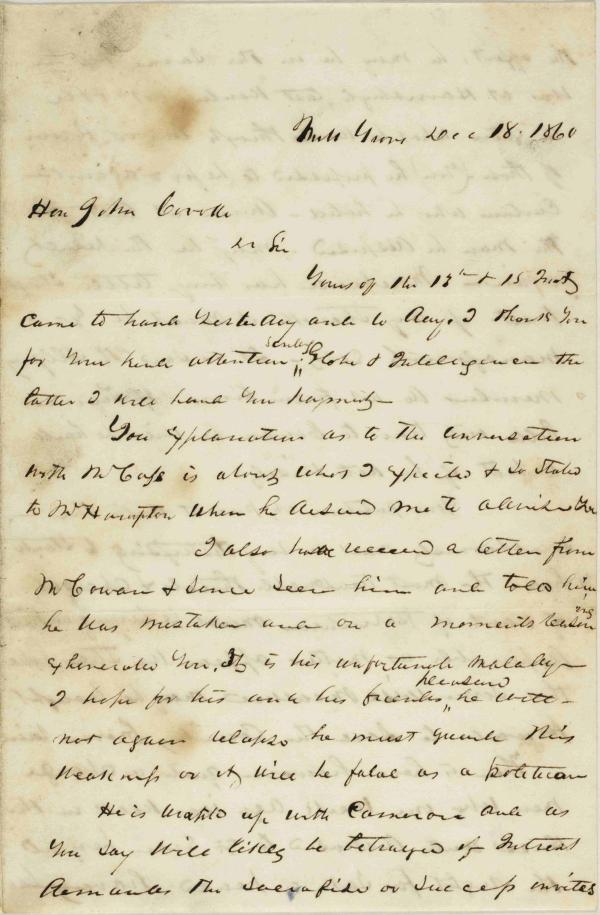 Mill Grove Dec 18. 1860
Hon John Covode
Dr Sir
Yours of the 13th & 15 Inst
came to hand Yesterday and to day. I thank You
for Your kind attention, sending Globe & Intelligencer the
latter I will hand You
You explanation as to the conversation
with Mr Cass is about what I expected & so stated
to Mr Hampton when he desired me to
I also have received a letter from
Mr Cowan & since seen him and told him
he was mistaken and on a moments reasoning
exhonerates You. It is his unfortunate malady
I hope for his and his friends pleasure he will
not again relapse he must guard this
weakness or it will be fatal as a politician
He is wraped up with Cameron and as
You say will likely be betrayed if Interest
demands the sacrafise or success invites